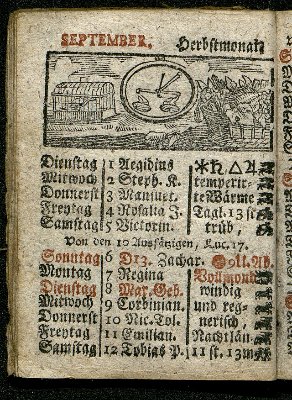 SEPTEMBER. Herbstmonat
Dienstag 1 Aegidius
Mitwoch 2 Steph. K. temperir-
Donnerst 3 Mansuet. te Wärme
Freytag 4 Rosalia J. Tagl. 13 st
Samstag 5 Victorin. trüb,
Von den 10 Aussätzigen, Luc. 17.
Sonntag 6 D13. Zachar.
Montag 7 Regina Vollmond
Dienstag 8 Mar. Geb. windig
Mitwoch 9 Corbinian. und reg-
Donnerst 10 Nic. Tol. nerisch,
Freytag 11 Emilian. Nachtlän.
Samstag 12 Tobias P. 11 st. 13 m